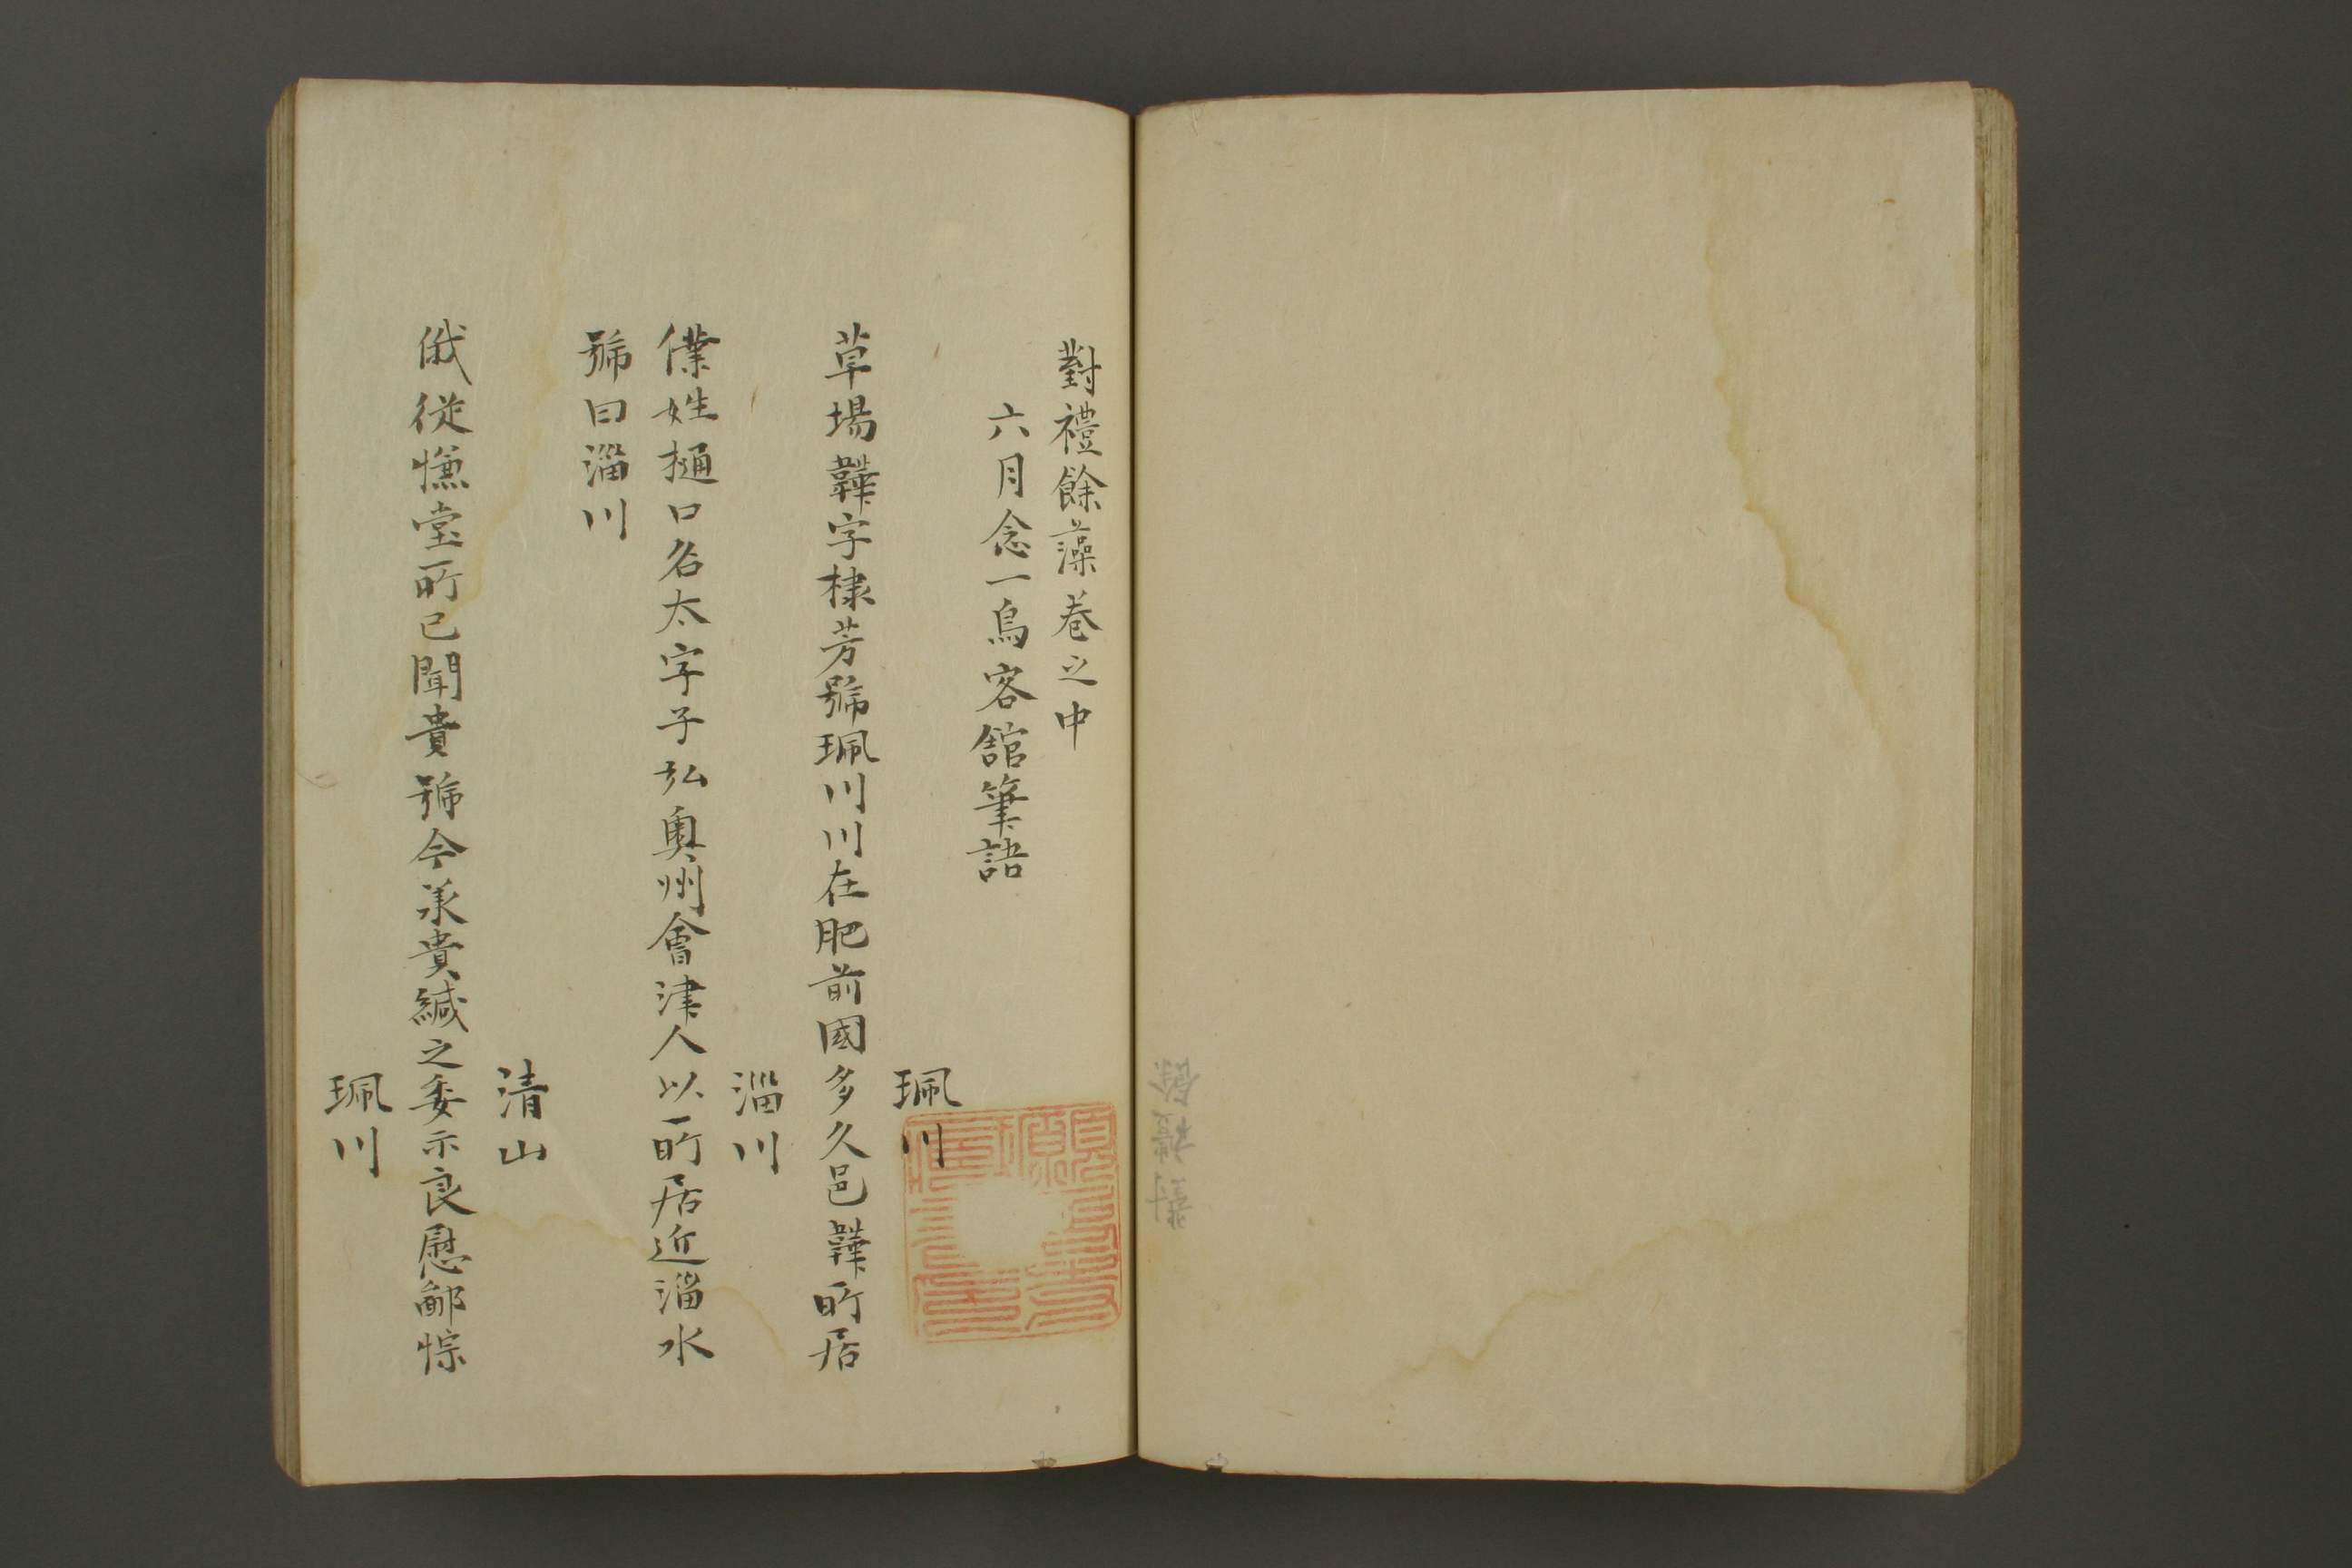 對禮餘藻巻之中
六月念一烏客舘筆語
珮川
草場韡字棣芳號珮川川在肥前國多久邑韡所居
淄川
僕姓樋口名太字子弘奥州會津人以所居近淄水
號曰淄川
清山
俄従慊堂所已聞貴號今承貴緘之委示良慰鄙悰
珮川
對禮餘